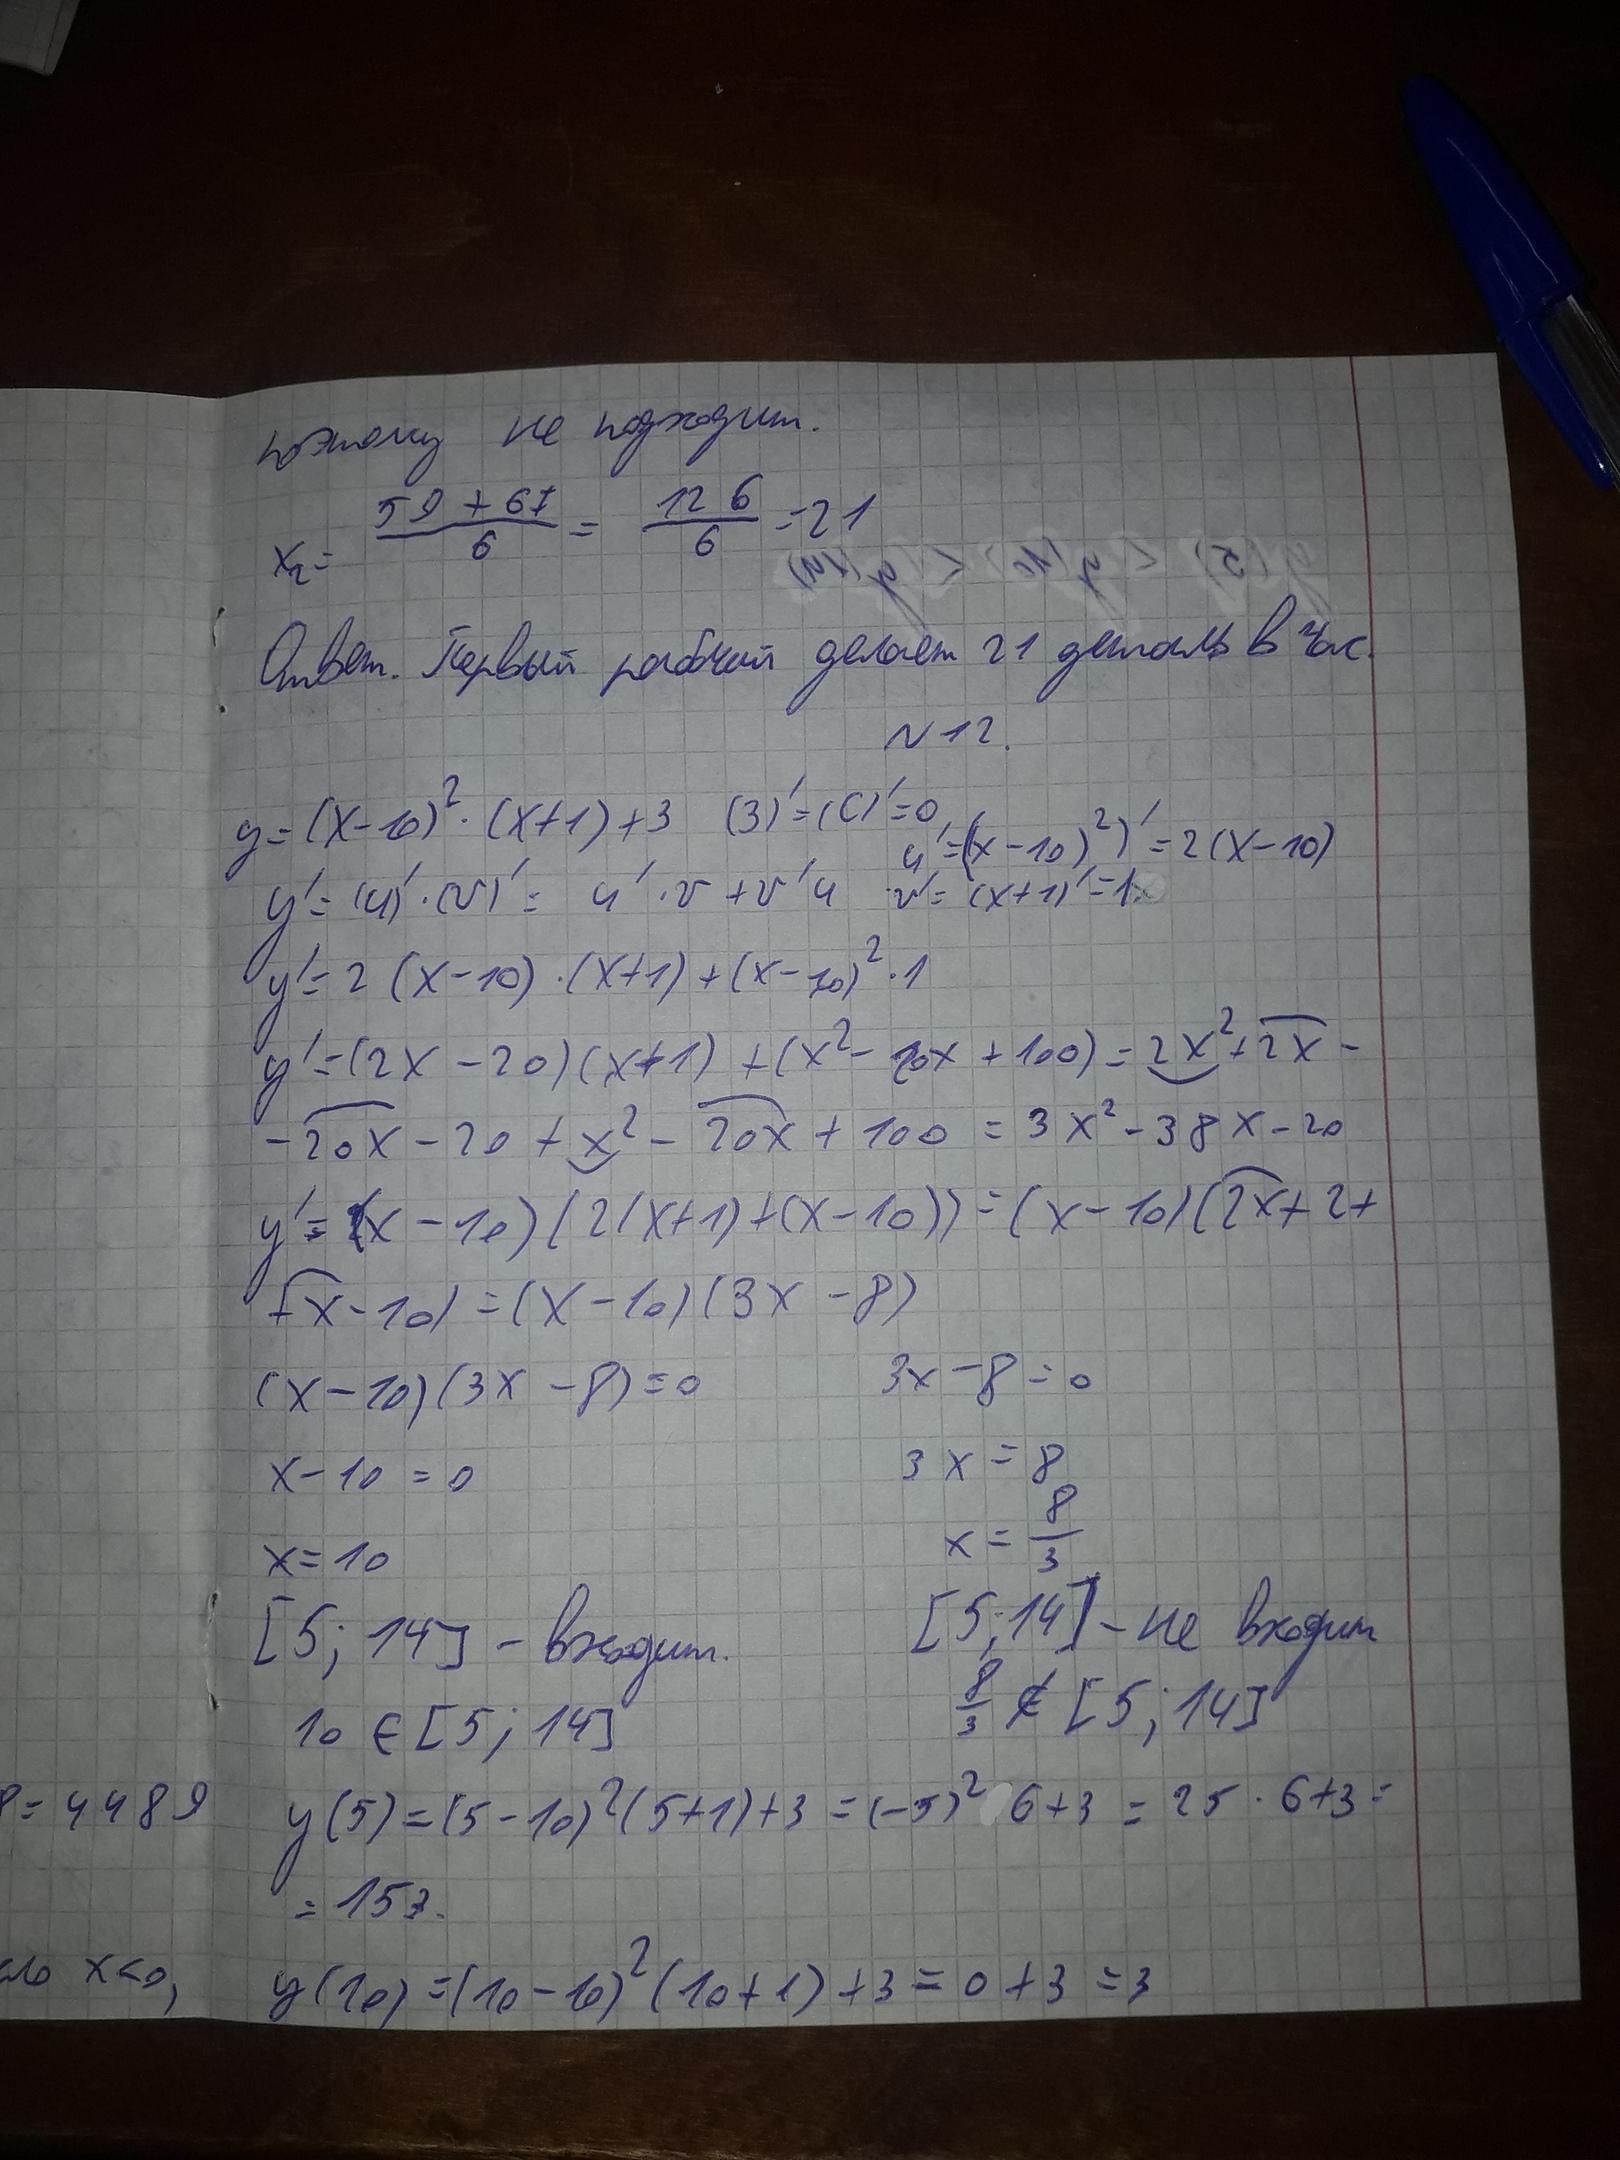 поэтому не подходит.
x₂= (59 + 67)/6 = 126/6 = 21
Ответ. Первый рабочий делает 21 деталь в час.
N12.
y=(x-10)²·(x+1)+3 (3)'=(C)'=0
u'=((x-10)²)'=2(x-10)
y'=(u)'·(v)'= u'·v+v'u v'=(x+1)'=1
y'=2(x-10)·(x+1)+(x-10)²·1
y'=(2x-20)(x+1)+(x²-20x+100)=2x²+2x-
-20x-20+x²-20x+100=3x²-38x-20
y'=(x-10)(2(x+1)+(x-10))=(x-10)(2x+2+
+x-10)=(x-10)(3x-8)
(x-10)(3x-8)=0 3x-8=0
x-10=0 3x=8
x=10 x=8/3
[5; 14] - входит. [5;14] - не входит
10 ∈ [5; 14] 8/3 ∉ [5; 14]
8=4489
y(5)=(5-10)²(5+1)+3=(-5)² 6+3=25·6+3=
=153.
x<0,
y(10)=(10-10)²(10+1)+3=0+3=3